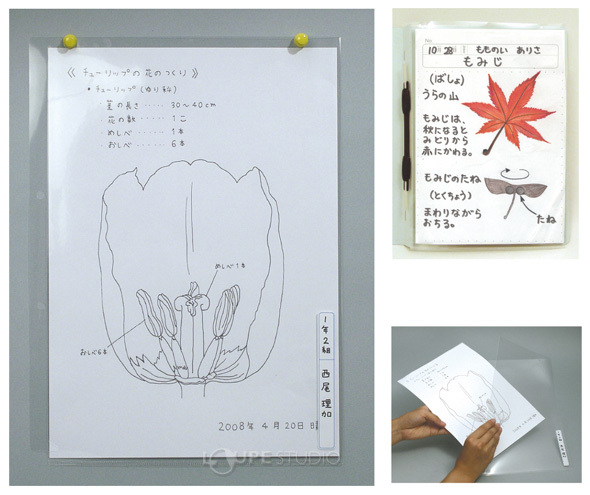 《チューリップの花のつくり》
・チューリップ(ゆり科)
・茎の長さ ‥‥‥ 30〜40cm
・花の数 ‥‥‥ 1こ
・めしべ ‥‥‥ 1本
・おしべ ‥‥‥ 6本
めしべ1本
おしべ6本
1年2組 西尾 理加
2008年 4月20日
LOUPE STUDIO
No.
10 28 もものい ありさ
もみじ
(ばしょ)
うらの山
もみじは、
秋になると
みどりから
赤にかわる。
もみじのたね
(とくちょう)
まわりながら
おちる。
たね